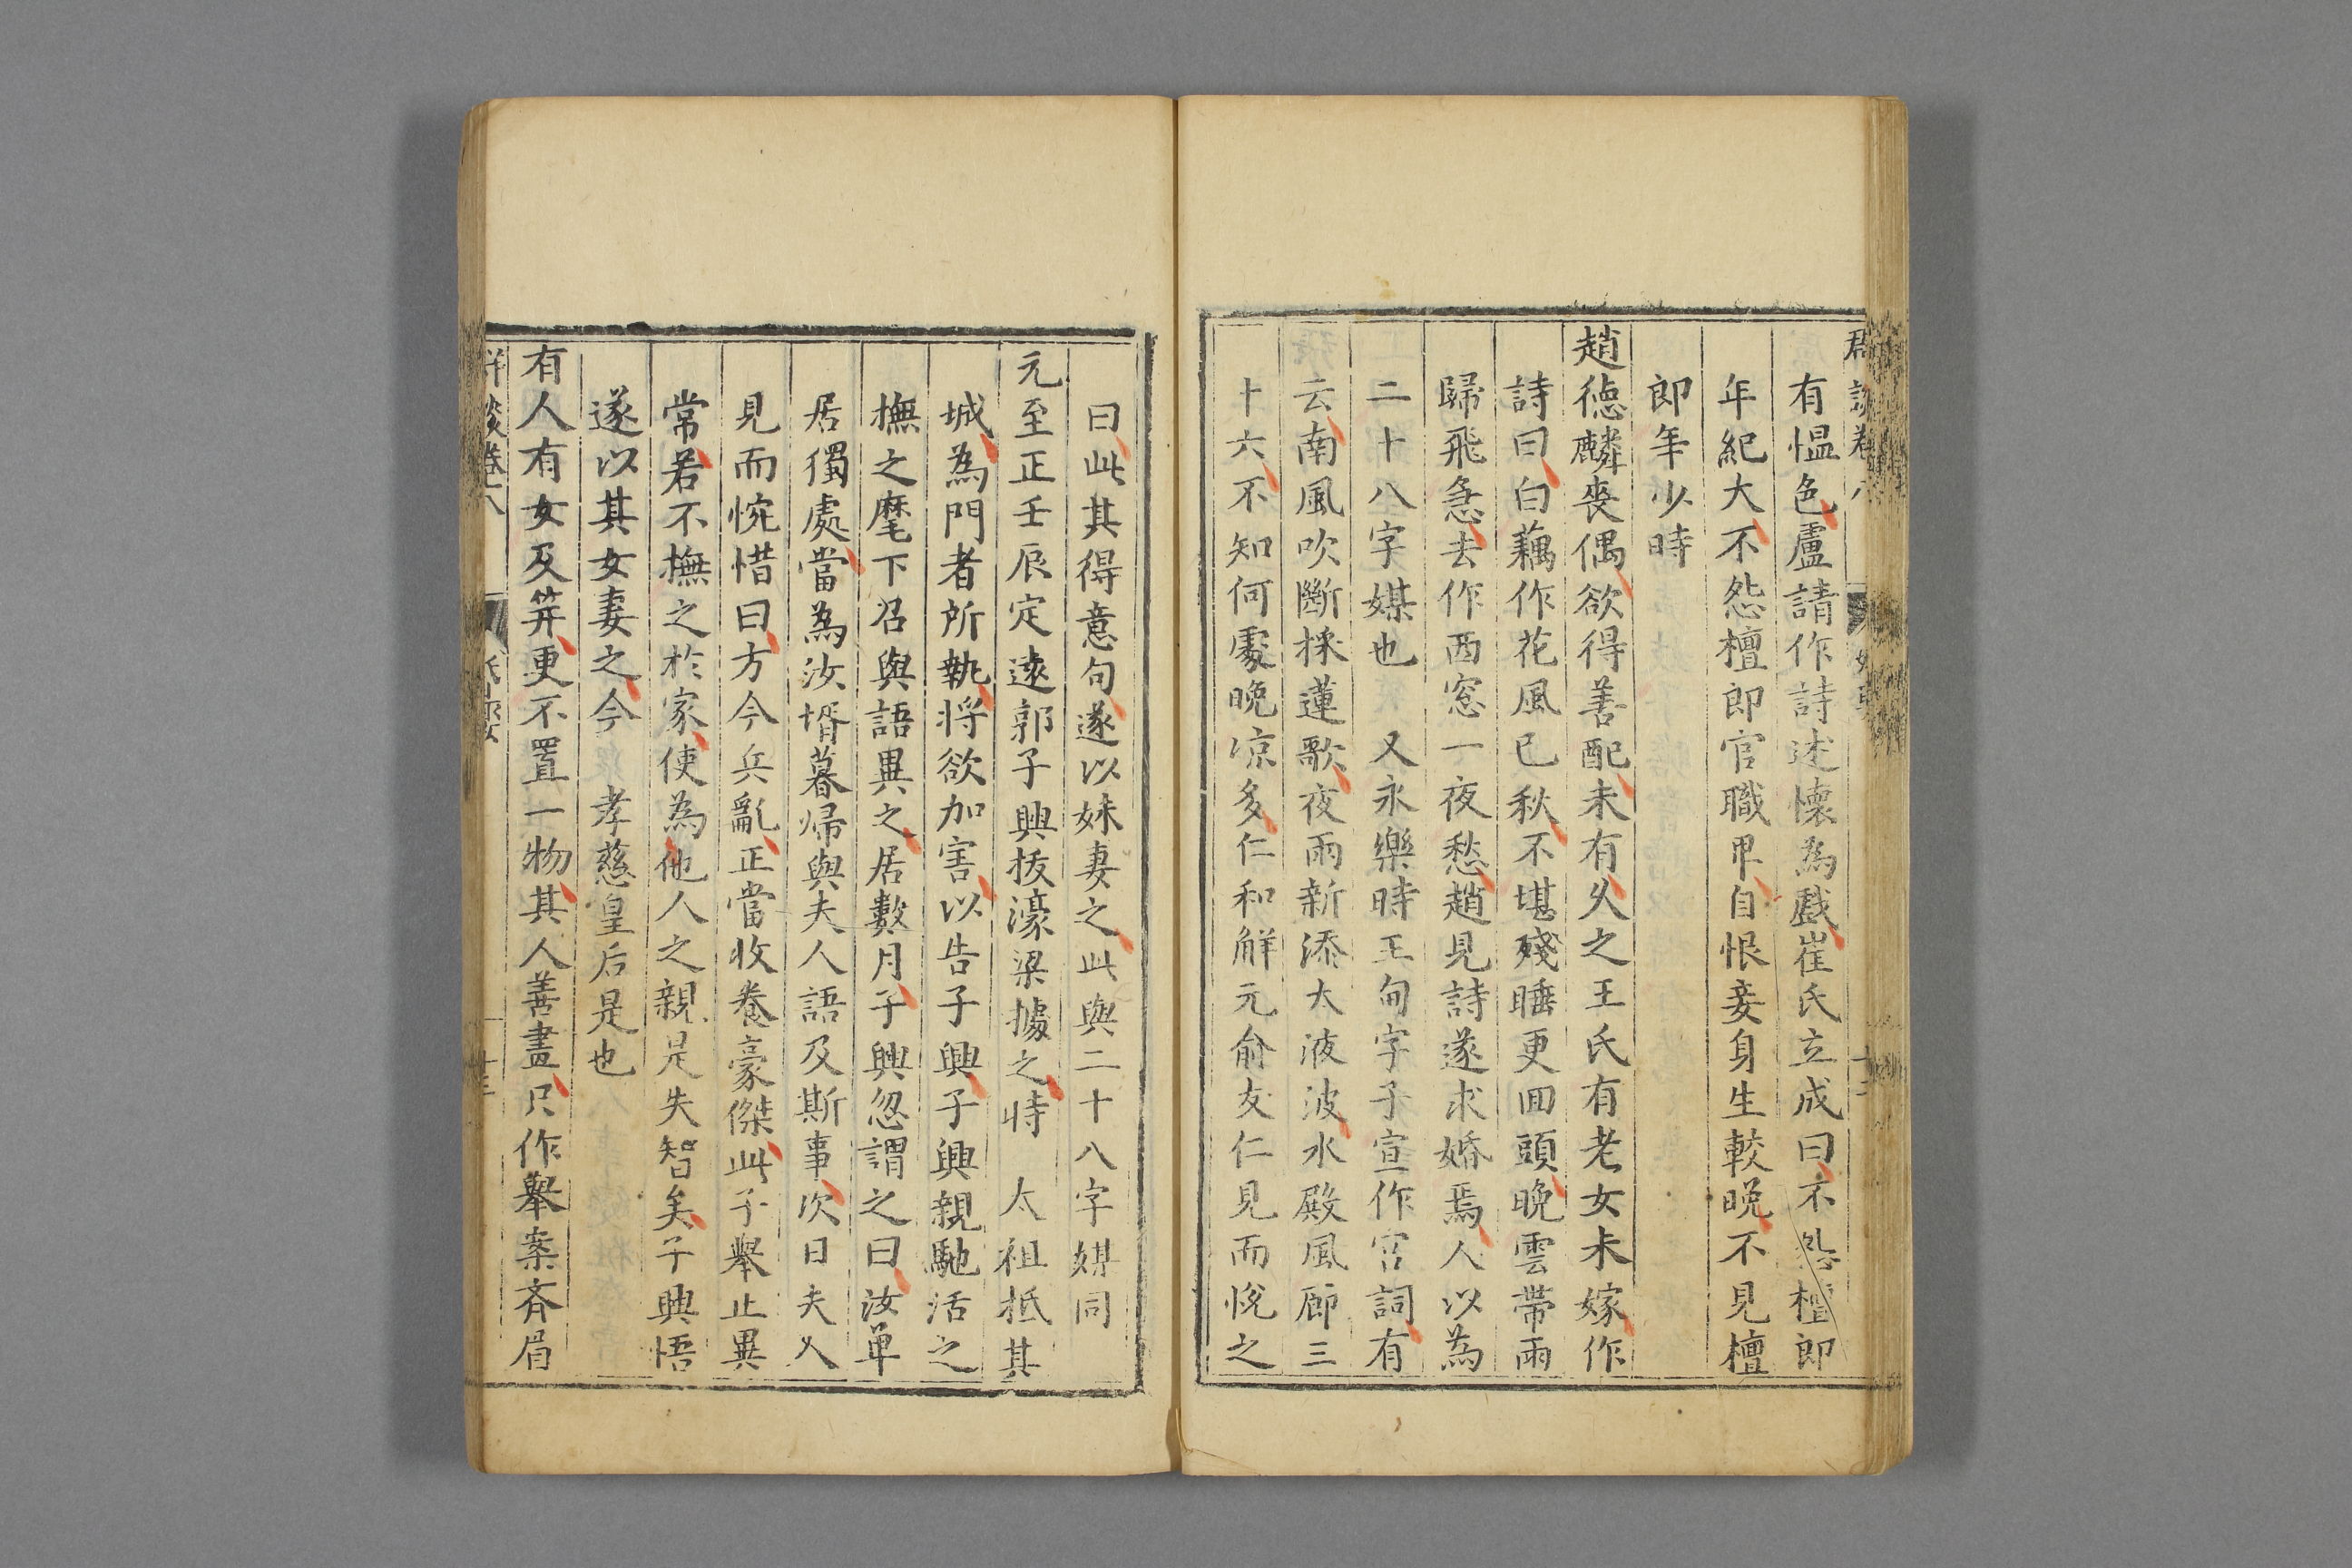 有愠色盧請作詩述懷為戲崔氏立成曰不怨檀郎
年紀大不怨檀郎官職卑自恨妾身生較晚不見檀
郎年少時
趙德麟喪偶欲得善配未有久之王氏有老女未嫁作
詩曰白藕作花風已秋不堪殘睡更囬頭晚雲帶雨
歸飛急去作西窓一夜愁趙見詩遂求婚焉人以為
二十八字媒也 又永樂時王甸字子宣作宮詞有
云南風吹斷採蓮歌夜雨新添太液波水殿風廊三
十六不知何處晚凉多仁和解元俞友仁見而悅之
曰此其得意句遂以妹妻之此與二十八字媒同
元至正壬辰定遠郭子興拔濠梁據之時 太祖抵其
城為門者所執将欲加害以告子興子興親馳活之
撫之麾下召與語異之居數月子興忽謂之曰汝单
居獨處當為汝壻暮帰與夫人語及斯事次日夫人
見而惋惜曰方今兵亂正當收養豪傑此子舉止異
常若不撫之於家使為他人之親是失智矣子興悟
遂以其女妻之今 孝慈皇后是也
有人有女及笄更不置一物其人善畫只作舉案齊眉